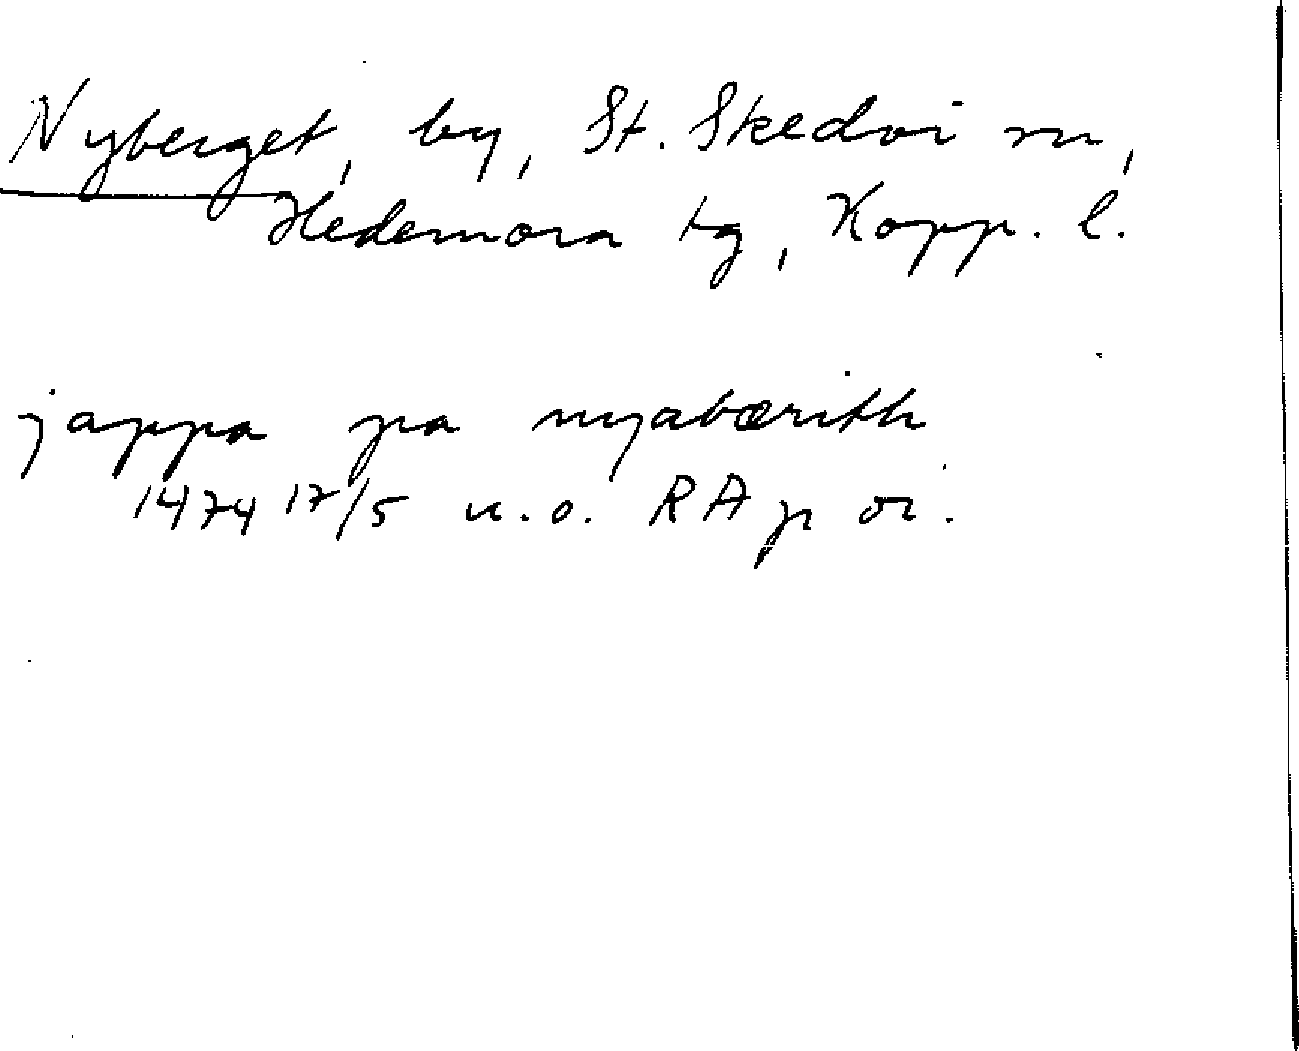 Nyberget, by, St. Skedvi sn,
Hedemora tg, Kopp. l.
jappa pa nyabærith
1474 17/5 u.o. RAp or.